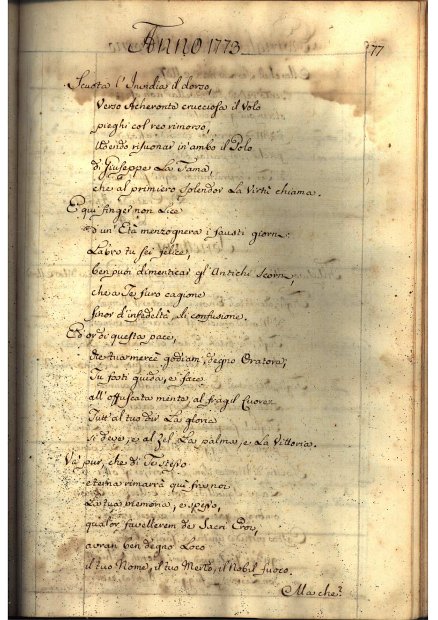 Anno 1773
77
Scuota l'Invidia il dorso,
Verso Acheronte crucciosa il Volo
pieghi col reo rimorso,
Udendo risuonar in ambo il Polo
di Giuseppe La Fama,
che al primiero splendor La Virtù chiama.
E qui finger non Lice
d'un'Età menzognera i fausti giorni:
Labro tu sei felice,
ben puoi dimenticar gl'Antichi scorni,
che a Te furo cagione
finor d'infedeltà, di confusione.
Ed or di questa pace,
die tua mercè godiam, degno Oratore,
Tu fosti guida, e face
all'offuscata mente, al fragil Cuore:
Tutt'al tuo dir La gloria
si deve, e al Zel La palma, e La Vittoria.
Và pur, che di Te stesso
eterna rimarrà quì frà noi
La tua memoria, e spesso,
qualor favellerem de' Sacri Eroi,
avran ben degno Loco
il tuo Nome, il tuo Merto, il Nobil fuoco.
Ma che?